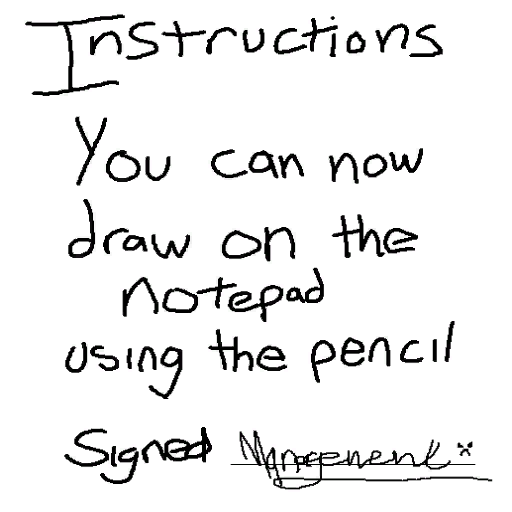 Instructions
You can now
draw on the
notepad
using the pencil
Signed Management x